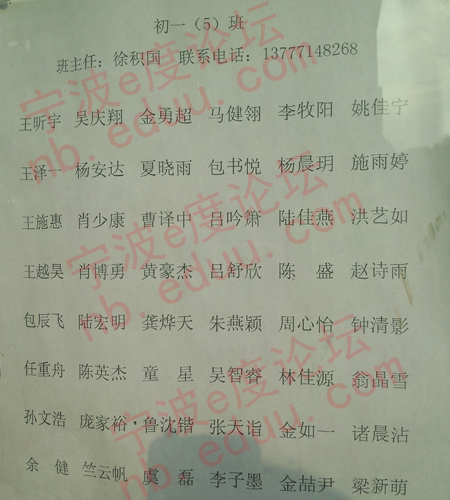 初一（5）班
班主任：徐积国 联系电话：13777148268
王昕宇 吴庆翔 金勇超 马健翎 李牧阳 姚佳宁
王泽一 杨安达 夏晓雨 包书悦 杨晨玥 施雨婷
王施惠 肖少康 曹译中 吕吟箫 陆佳燕 洪艺如
王越昊 肖博勇 黄豪杰 吕舒欣 陈 盛 赵诗雨
包辰飞 陆宏明 龚烨天 朱燕颖 周心怡 钟清影
任重舟 陈英杰 童 星 吴智睿 林佳源 翁晶雪
孙文浩 庞家裕 鲁沈锴 张天诣 金如一 诸晨沾
余 健 竺云帆 虞 磊 李子墨 金喆尹 梁新萌
宁波e度论坛
nb.eduu.com
宁波e度论坛
nb.eduu.com
宁波e度论坛
nb.eduu.com